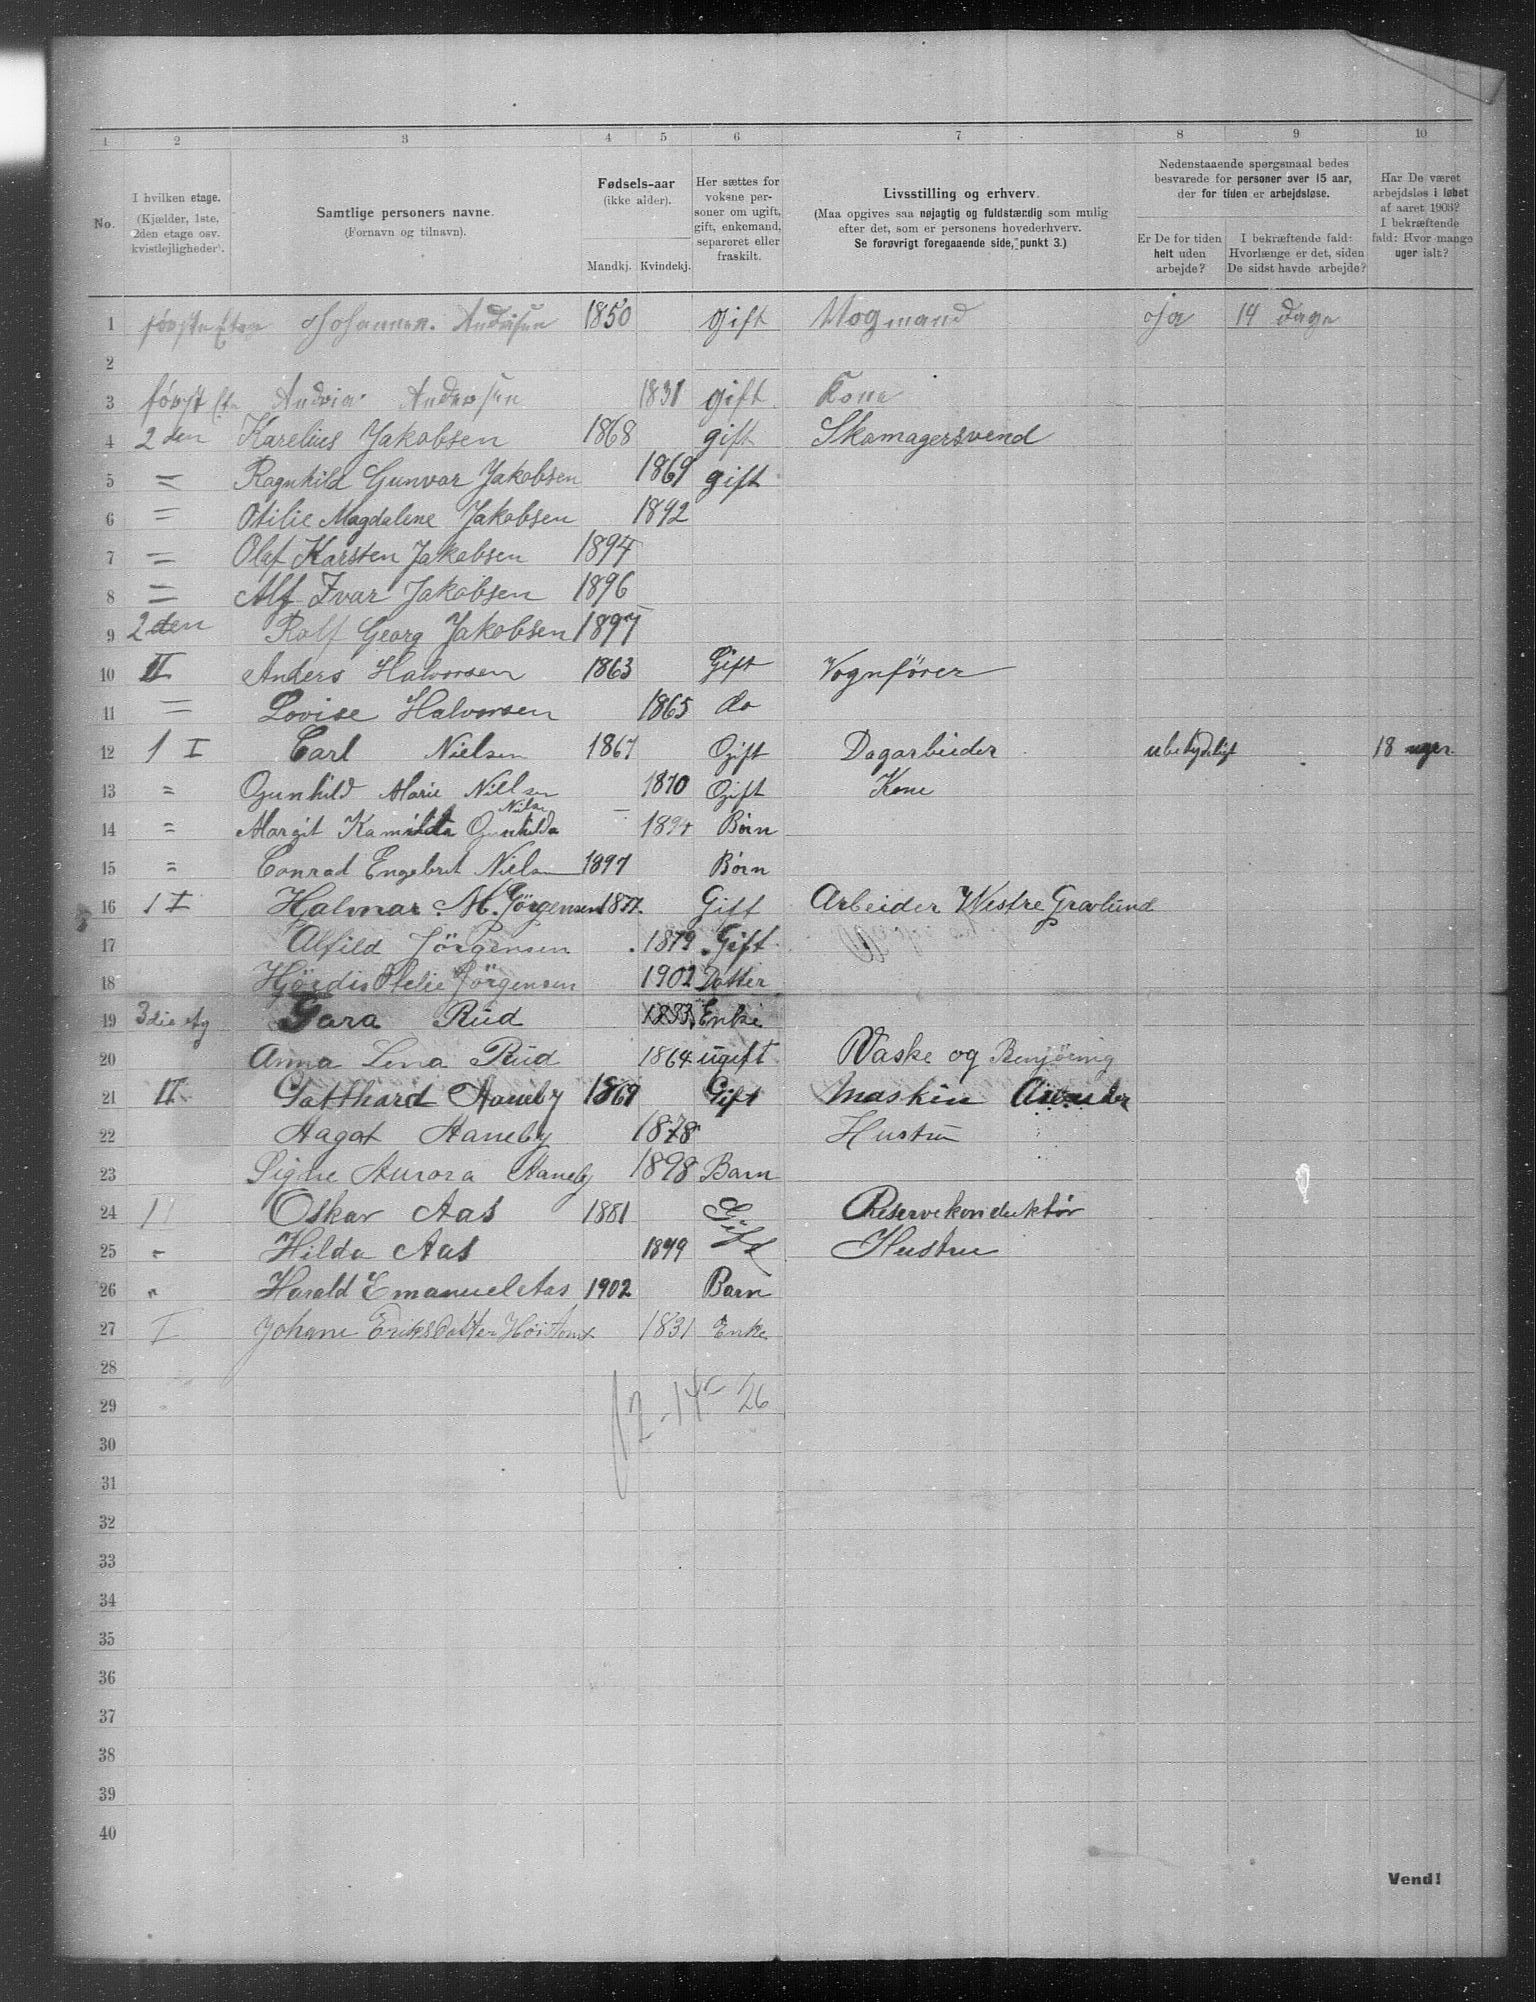 1 2 3 4 5 6 7 8 9 10
No.
I hvilken etage. (Kjælder, 1ste, 2den etage osv. kvistlejligheder).
Samtlige personers navne. (Fornavn og tilnavn).
Fødsels-aar (ikke alder).
Mandkj. Kvindekj.
Her sættes for voksne personer om ugift, gift, enkemand, separeret eller fraskilt.
Livsstilling og erhverv.
(Maa opgives saa nøjagtig og fuldstændig som mulig efter det, som er personens hovederhverv. Se forøvrigt foregaaende side, punkt 3.)
Nedenstaaende spørgsmaal bedes besvarede for personer over 15 aar, der for tiden er arbejdsløse.
Er De for tiden helt uden arbejde?
I bekræftende fald: Hvorlænge er det, siden De sidst havde arbejde?
Har De været arbejdsløs i løbet af aaret 1903? I bekræftende fald: Hvor mange uger ialt?
1 første Johannes. Andersen 1850 gift Vogmand Ja 14 Dage
2
3 først Andria Andersen 1831 gift Kone
4 2den Karelius Jakobsen 1868 gift Skomagersvend
5 = Ragnhild Gunvor Jakobsen 1869 gift
6 = Otilie Magdalene Jakobsen 1892
7 = Olaf Karsten Jakobsen 1894
8 = Alf Ivar Jakobsen 1896
9 2den Rolf Georg Jakobsen 1897
10 II Anders Halvorsen 1863 Gift Vognfører
11 = Lovise Halvorsen 1865 do
12 1 I Carl Nielsen 1867 Gift Dagarbeider ubetydeligt 18 uger
13 " Gunhild Marie Nielsen 1870 Gift Kone
14 " Margit Kamilla Gunhilda Nilsen Børn
15 " Conrad Engebret Nielsen 1897 Børn
16 1 I Halmar. M. Jörgensen 1877. Gift Arbeider Westre Gravlund
17 Alfild Jörgensen 1879 Gift
18 Hjördis Otelie Jörgensen 1902 Datter
19 3die Etg Gara Rud 1833 Enke
20 Anna Lena Rud 1864 ugift Vaske og Renjöring
21 II Gotthard Haneby 1869 Gift Maskin
22 Hagot Haneby 1878 Hustru
23 Signe Aurora Haneby 1898 Barn
24 Oskar Aas 1881 Gift Reservekonduktør
25 " Hilda Aas 1879 Hustru
26 " Harald Emanuel Aas 1902 Barn
27 I Johane Eriksdatter 1831 Enke
28
29 12-14 26
30
31
32
33
34
35
36
37
38
39
40
Vend!